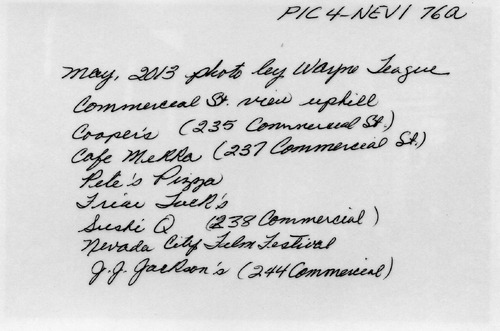 PIC 4-NEV1 76a
May, 2013 photo by Wayne League
Commercial St. view uphill
Cooper's (235 Commercial St.)
Cafe Mekka (237 Commercial St.)
Pete's Pizza
Friar Tuck's
Sushi Q (238 Commercial)
Nevada City Film Festival
J.J. Jackson's (244 Commercial)